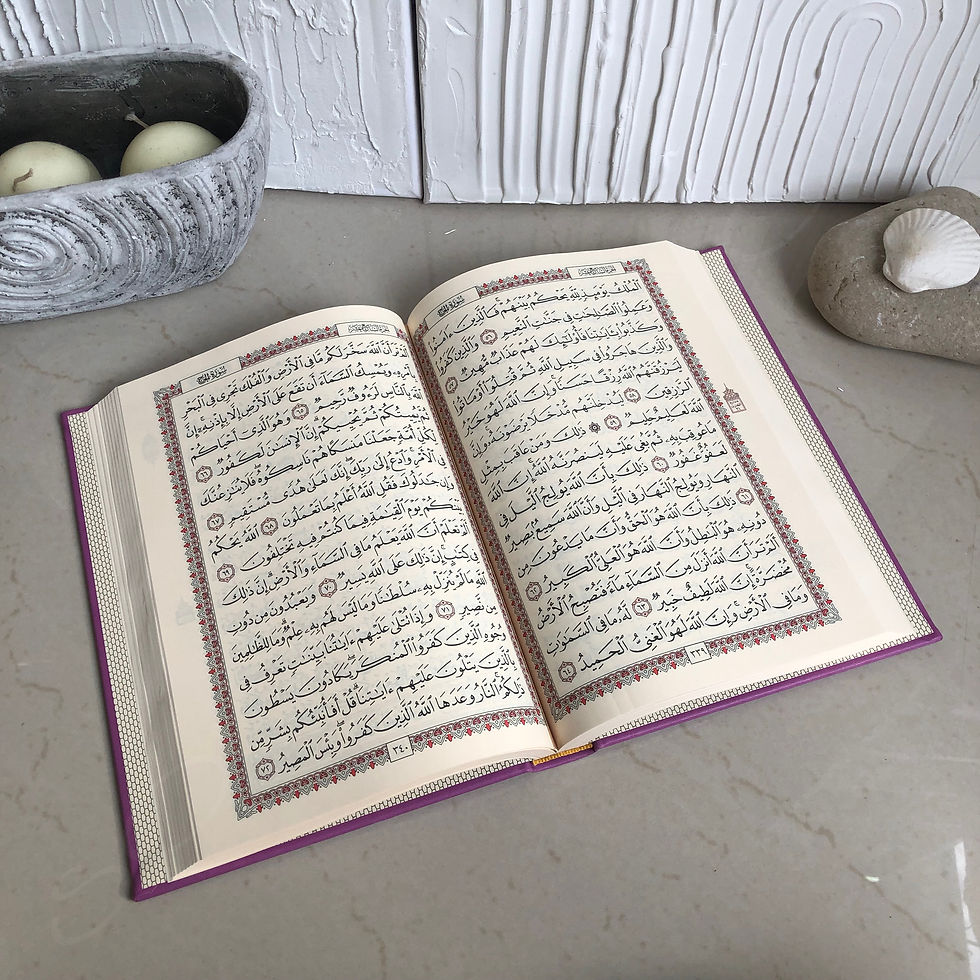 الجزء السابع عشر
سورة الحج
ٱلْمُلْكُ يَوْمَئِذٍ لِّلَّهِ يَحْكُمُ بَيْنَهُمْ ۚ فَٱلَّذِينَ ءَامَنُوا۟
وَعَمِلُوا۟ ٱلصَّٰلِحَٰتِ فِى جَنَّٰتِ ٱلنَّعِيمِ ٥٦ وَٱلَّذِينَ كَفَرُوا۟
وَكَذَّبُوا۟ بِـَٔايَٰتِنَا فَأُو۟لَٰٓئِكَ لَهُمْ عَذَابٌ مُّهِينٌ ٥٧
وَٱلَّذِينَ هَاجَرُوا۟ فِى سَبِيلِ ٱللَّهِ ثُمَّ قُتِلُوٓا۟ أَوْ مَاتُوا۟
لَيَرْزُقَنَّهُمُ ٱللَّهُ رِزْقًا حَسَنًا ۚ وَإِنَّ ٱللَّهَ لَهُوَ خَيْرُ
ٱلرَّٰزِقِينَ ٥٨ لَيُدْخِلَنَّهُم مُّدْخَلًا يَرْضَوْنَهُۥ ۗ وَإِنَّ
ٱللَّهَ لَعَلِيمٌ حَلِيمٌ ٥٩ ۞ ذَٰلِكَ وَمَنْ عَاقَبَ بِمِثْلِ
مَا عُوقِبَ بِهِۦ ثُمَّ بُغِىَ عَلَيْهِ لَيَنصُرَنَّهُ ٱللَّهُ ۗ إِنَّ ٱللَّهَ
لَعَفُوٌّ غَفُورٌ ٦٠ ذَٰلِكَ بِأَنَّ ٱللَّهَ يُولِجُ ٱلَّيْلَ فِى
ٱلنَّهَارِ وَيُولِجُ ٱلنَّهَارَ فِى ٱلَّيْلِ وَأَنَّ ٱللَّهَ سَمِيعٌۢ بَصِيرٌ ٦١
ذَٰلِكَ بِأَنَّ ٱللَّهَ هُوَ ٱلْحَقُّ وَأَنَّ مَا يَدْعُونَ مِن
دُونِهِۦ هُوَ ٱلْبَٰطِلُ وَأَنَّ ٱللَّهَ هُوَ ٱلْعَلِىُّ ٱلْكَبِيرُ ٦٢
أَلَمْ تَرَ أَنَّ ٱللَّهَ أَنزَلَ مِنَ ٱلسَّمَآءِ مَآءً فَتُصْبِحُ ٱلْأَرْضُ
مُخْضَرَّةً ۗ إِنَّ ٱللَّهَ لَطِيفٌ خَبِيرٌ ٦٣ لَّهُۥ مَا فِى ٱلسَّمَٰوَٰتِ
وَمَا فِى ٱلْأَرْضِ ۗ وَإِنَّ ٱللَّهَ لَهُوَ ٱلْغَنِىُّ ٱلْحَمِيدُ ٦٤
٣٣٩
الجزء السابع عشر
سورة الحج
أَلَمْ تَرَ أَنَّ ٱللَّهَ سَخَّرَ لَكُم مَّا فِى ٱلْأَرْضِ وَٱلْفُلْكَ تَجْرِى فِى ٱلْبَحْرِ
بِأَمْرِهِۦ وَيُمْسِكُ ٱلسَّمَآءَ أَن تَقَعَ عَلَى ٱلْأَرْضِ إِلَّا بِإِذْنِهِۦٓ ۗ إِنَّ
ٱللَّهَ بِٱلنَّاسِ لَرَءُوفٌ رَّحِيمٌ ٦٥ وَهُوَ ٱلَّذِىٓ أَحْيَاكُمْ
ثُمَّ يُمِيتُكُمْ ثُمَّ يُحْيِيكُمْ ۗ إِنَّ ٱلْإِنسَٰنَ لَكَفُورٌ ٦٦
لِّكُلِّ أُمَّةٍ جَعَلْنَا مَنسَكًا هُمْ نَاسِكُوهُ ۖ فَلَا يُنَٰزِعُنَّكَ
فِى ٱلْأَمْرِ ۚ وَٱدْعُ إِلَىٰ رَبِّكَ ۖ إِنَّكَ لَعَلَىٰ هُدًى مُّسْتَقِيمٍ ٦٧
وَإِن جَٰدَلُوكَ فَقُلِ ٱللَّهُ أَعْلَمُ بِمَا تَعْمَلُونَ ٦٨ ٱللَّهُ يَحْكُمُ
بَيْنَكُمْ يَوْمَ ٱلْقِيَٰمَةِ فِيمَا كُنتُمْ فِيهِ تَخْتَلِفُونَ ٦٩
أَلَمْ تَعْلَمْ أَنَّ ٱللَّهَ يَعْلَمُ مَا فِى ٱلسَّمَآءِ وَٱلْأَرْضِ ۗ إِنَّ ذَٰلِكَ
فِى كِتَٰبٍ ۚ إِنَّ ذَٰلِكَ عَلَى ٱللَّهِ يَسِيرٌ ٧٠ وَيَعْبُدُونَ مِن دُونِ
ٱللَّهِ مَا لَمْ يُنَزِّلْ بِهِۦ سُلْطَٰنًا وَمَا لَيْسَ لَهُم بِهِۦ عِلْمٌ ۗ وَمَا لِلظَّٰلِمِينَ
مِن نَّصِيرٍ ٧١ وَإِذَا تُتْلَىٰ عَلَيْهِمْ ءَايَٰتُنَا بَيِّنَٰتٍ تَعْرِفُ فِى
وُجُوهِ ٱلَّذِينَ كَفَرُوا۟ ٱلْمُنكَرَ ۖ يَكَادُونَ يَسْطُونَ
بِٱلَّذِينَ يَتْلُونَ عَلَيْهِمْ ءَايَٰتِنَا ۗ قُلْ أَفَأُنَبِّئُكُم بِشَرٍّ مِّن
ذَٰلِكُمُ ۗ ٱلنَّارُ وَعَدَهَا ٱللَّهُ ٱلَّذِينَ كَفَرُوا۟ ۖ وَبِئْسَ ٱلْمَصِيرُ ٧٢
٣٤٠